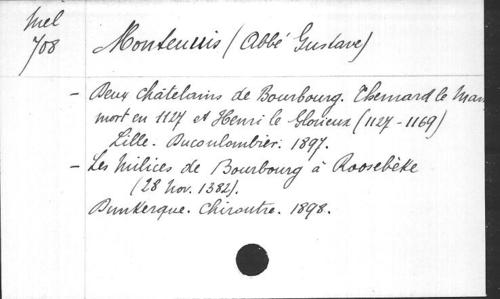 Mel
708
Monteuuis (Abbé Gustave)
- Deux châtelains de Bourbourg. Themard le
mort en 1127 et Henri le Glorieux (1127-1169)
Lille. Ducoulombier. 1897.
- Les Milices de Bourbourg à Roosebèke
(28 Nov. 1382).
Dunkerque. Chiroutre. 1898.